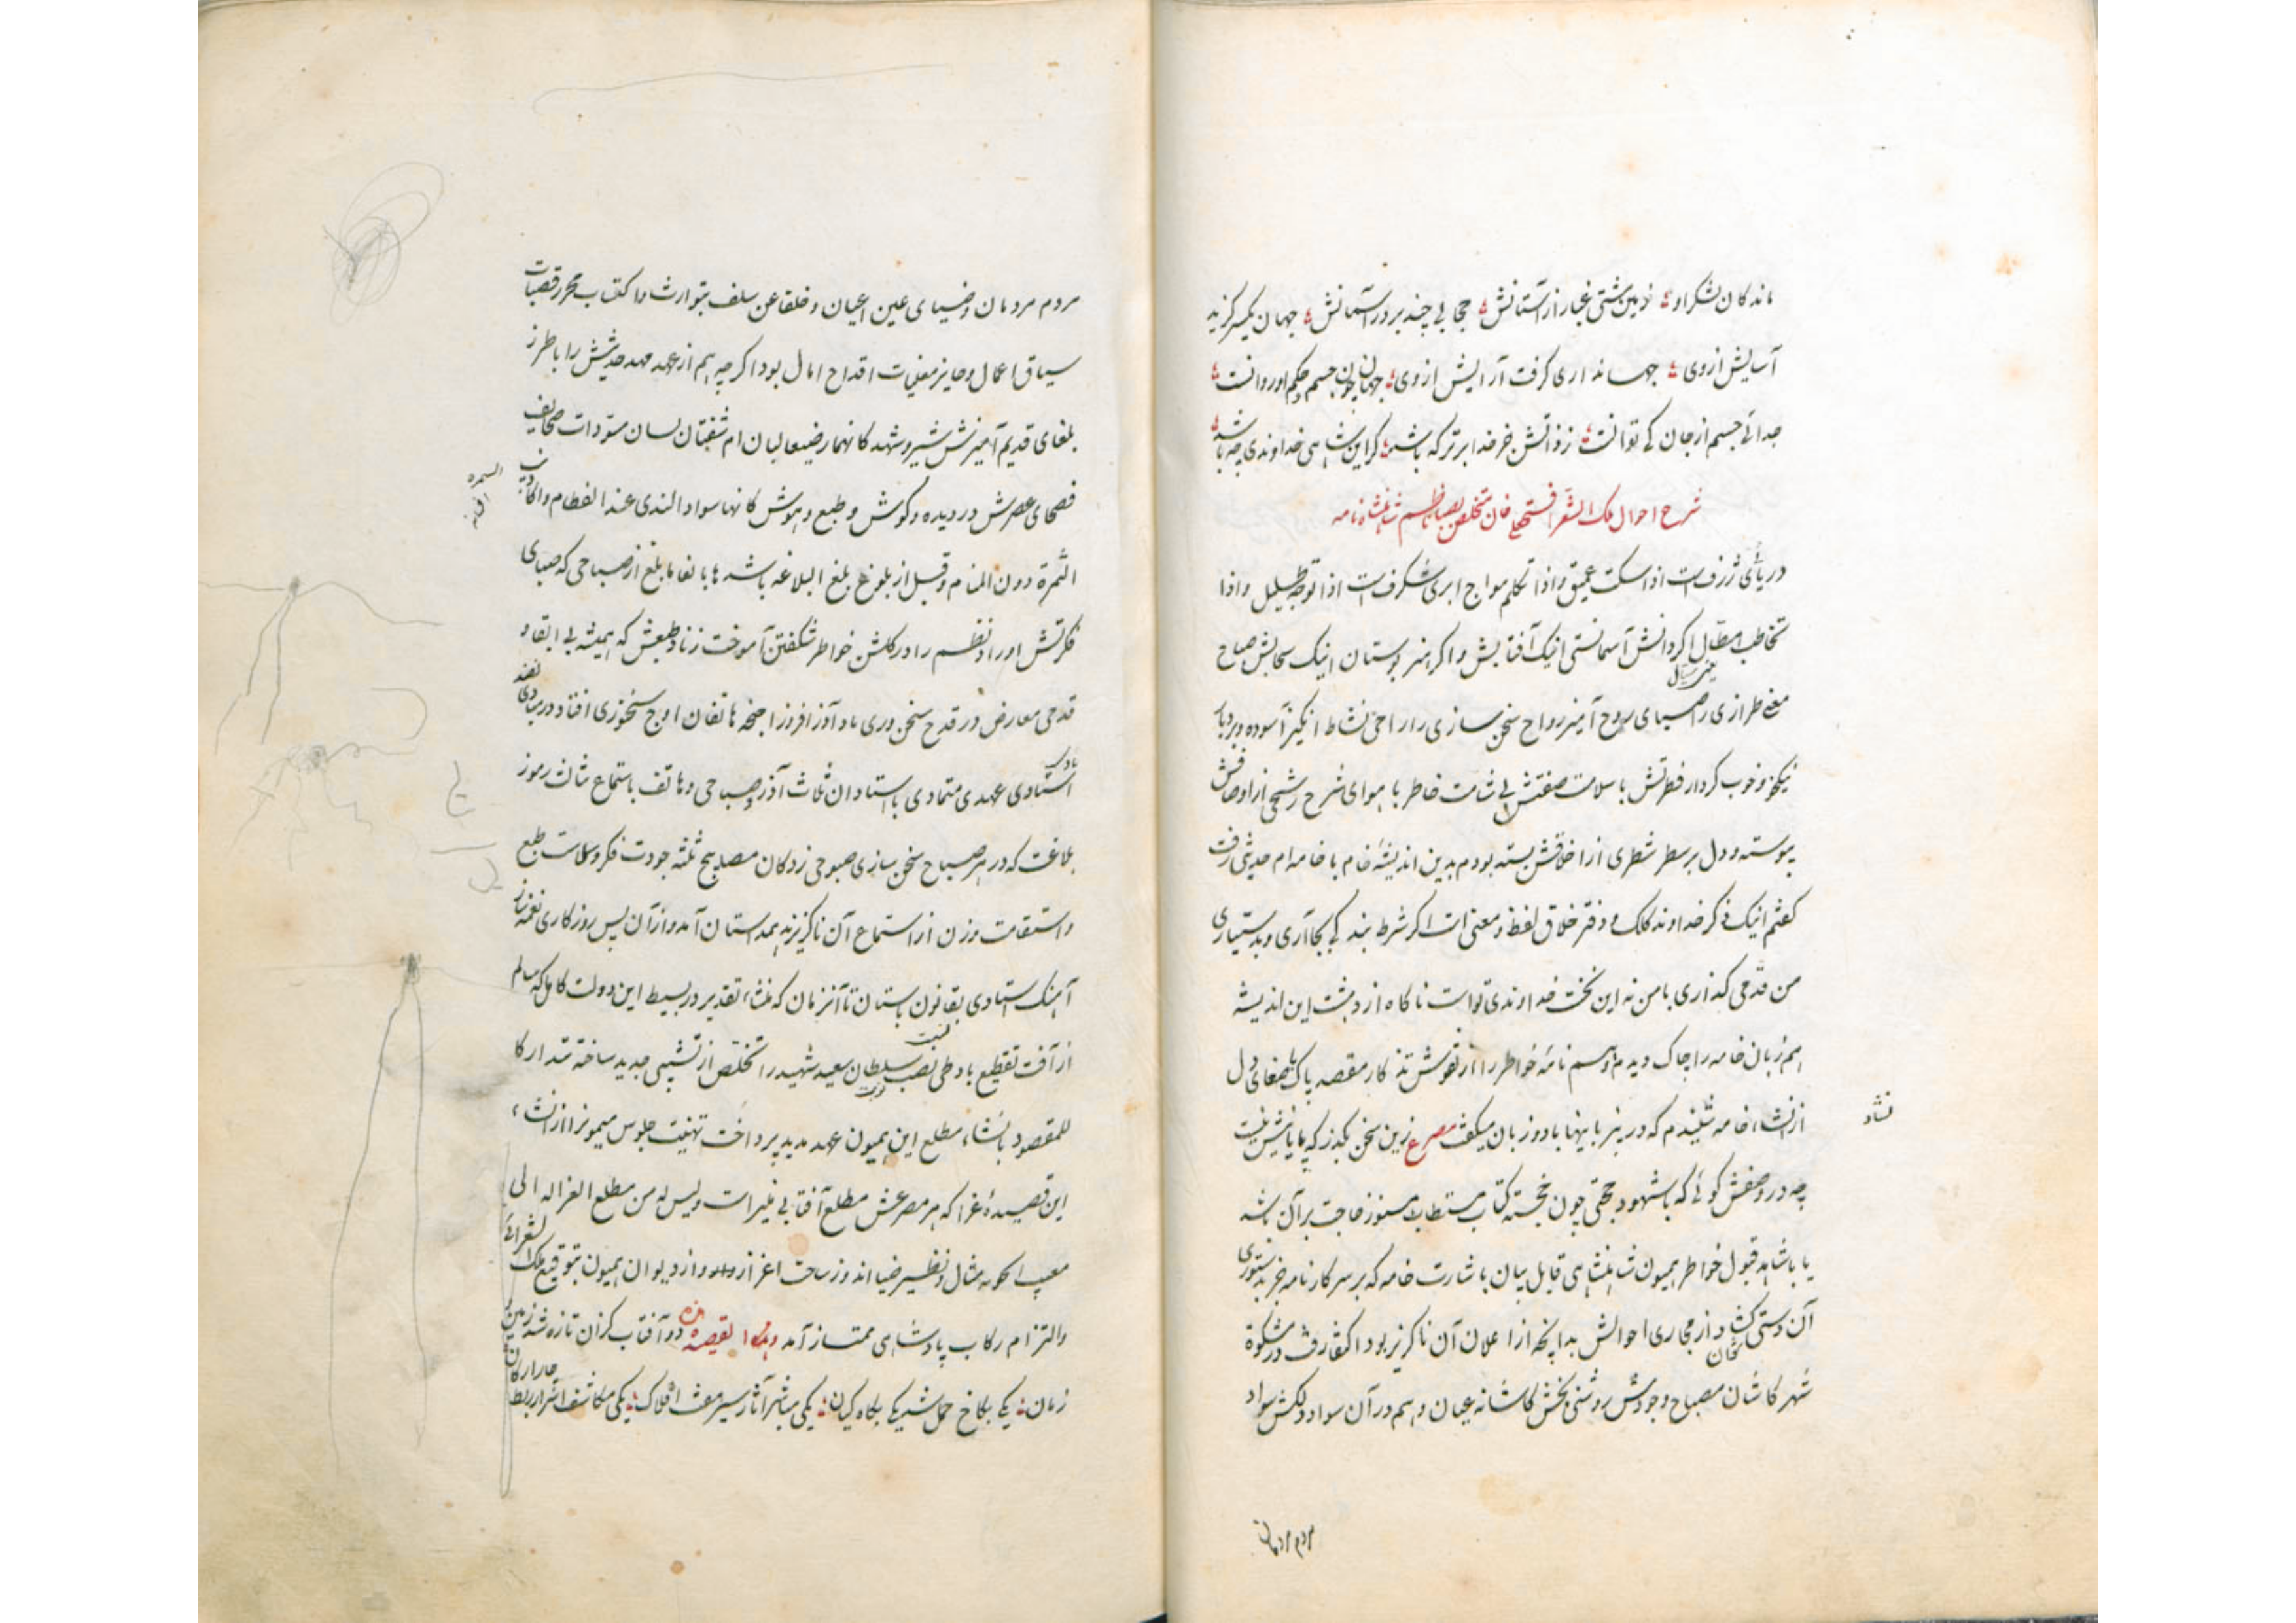 ماندکان شکر او زمین مشتی غبار از آستانش حجابی چند بر در آسمانش جهان یکسر گزید
آسایش از وی جهانداری گرفت آرایش از وی جهان چون جسم و حکم او روانست
جدائے جسم از جان کے توانست ز ذاتش جز خدا برتر که باشد گر این شاهی خداوندی چه باشد
شرح احوال ملک الشعرا فتحعلی خان متخلص بصبا ناظم شاهنشاه نامه
دریائی ژرفست اذا سکت عمیق واذا تکلم مواج ابری شکرفست اذا توجه ظلیل واذا
تخاطب هطال اگر دانش آسمانستی اینک آفتابش و اگر هنر بوستان اینک سحابش صباح
معنی طرازی را صهبای روح آمیز رواح سخن سازی را راحی نشاط انگیز آسوده و بردبار
نیکخو و خوب کردار فطرتش با سلامت صفتش بی شامت خاطر با هوای شرح رشحی از اوصافش
پیوسته و دل بر سطر شطری از اخلاقش بسته بودم بدین اندیشهٔ خام با خامه ام حدیثی رفت
گفتم اینک ذکر خداوند کلک و دفتر خلاق لفظ و معنی است اگر شرط بند کے بجا آری و بدستیاری
من قدمی گذاری با من نه این نخست خداوندی تواست ناگاه از دهشت این اندیشه
هم زبان خامه را چاک دیدم و هم نامهٔ خواطر را از نقوش تذکار مقصد پاک با صفای دل
از انشاء خامه شنیدم که در نیز با بنها با دو زبان میگفت مصرع زین سخن بگذر که پایانیش نیست
نشاد
چه در وصفش گوئی که باشهود حجتی چون خجسته کتاب مستطاب هنوز حاجت بر آن باشد
یا باشاهد قبول خواطر همیون شاهنشاهی قابل بیان باشارت خامه که بر سر کار نامه جز بدستوری
آن دستی نداشت از مجاری احوالش بدانچه از اعلان آن ناگزیر بود اکتفا رفت در مشکوة
شهر کاشان مصباح وجودش روشنی بخش کاشانه عیان و هم در آن سواد دلکش سواد
مردم مردمان
مردم مردمان وضیای عین اعیان و خلقا عن سلف بتوارث و اکتساب محرز قصبات
سیاق اعمال و حایز معلیات اقداح امال بود اگر چه هم از عهد مهد حدیثش را با طرز
بلغای قدیم آمیزش شیر و شهد کانهما رضیعا لبان ام شفتان لسان مسودات صحایف
فصحای عصرش در دیده و گوش و طبع و هوش کانها سواد الندی عند الفطام و اکاذیب
السمره
الثمرة دون المنام و قبل از بلوغ بلغ البلاغه باشد ها بالفا ما بلغ از صباحی که صبای
فکرتش اوراد نظم را در گلشن خواطر شکفتن آموخت زناد طبعش که همیشه بی ابقاد
قدحی معارض در قدح سخنوری باد آذر افروز اجنحه هاتفان اوج سخنوری افتاد در مبادی
استادی عهدی متمادی با استادان ثلاث آذر و صباحی و هاتف باستماع ثالث رموز
بلاغت که در هر صباح سخن سازی صبوحی زدگان مصابیح ثلثه جودت فکر و سلاست طبع
و استقامت وزن از استماع آن ناگزیزند همداستان آمد و از آن پس روزگاری نغمه ساز
آهنگ استادی بقانون باستان تا آنزمان که منشاء تقدیر در بسیط این دولت کامل که سالم
از آفت تقطیع باد طی نصب سلطان سعید شهید را تخلص از تشبیبی جدید ساخته تدارکا
للمقصود بانشاء مطلع این همیون عهد مدید پرداخت تهنیت جلوس میمونرا از انشاء
این قصیدهٔ غرا که هر مصرعش مطلع آفتابی منیر است ولیس له من مطلع الغزاله الی
مغیب الکونه مثال و نظیر ضیا اندوز ساحت اعزاز و از دیوان همیون بتوقیع ملک الشعرائے
و التزام رکاب پادشاهی ممتاز آمد وهذا القصیده دو آفتاب کزان تازه شد زمین و
زمان یکی بکاخ حمل شد یکی بکاه کیان یکی مباشر آثار سیر هفت افلاک یکی مکاشف اسرار ربط
چار ارکان